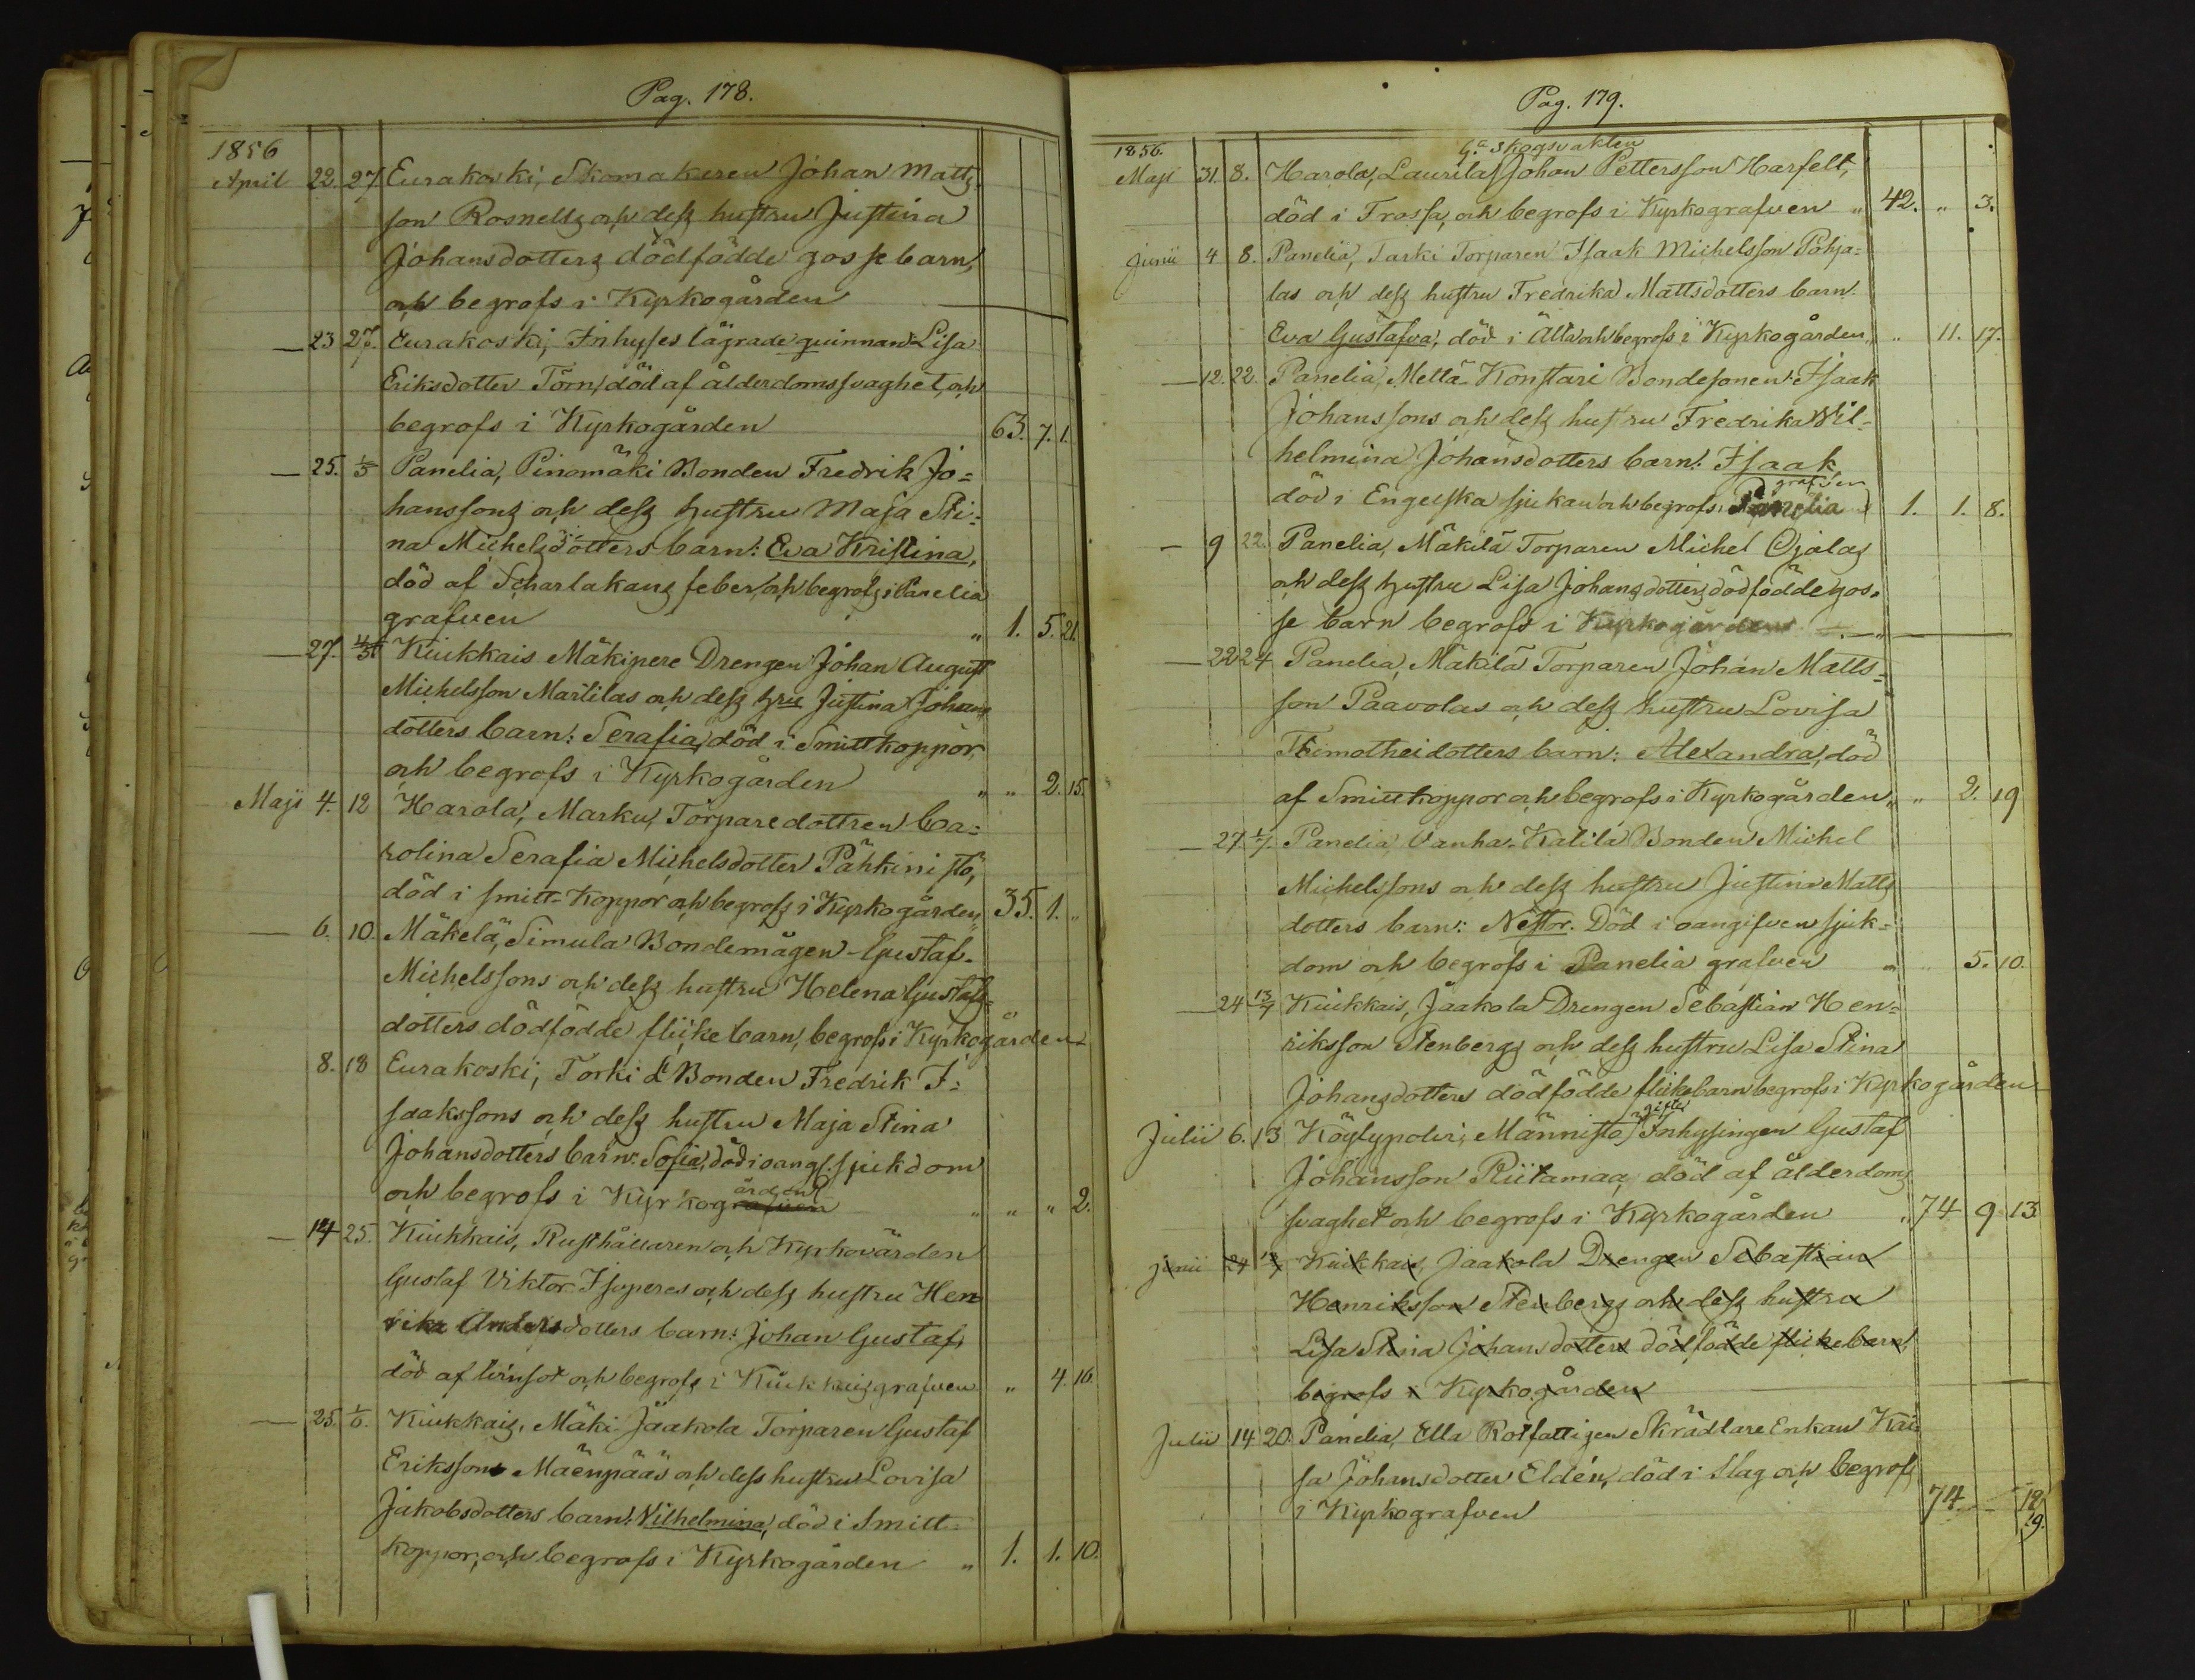 Pag. 178.
1856
April 22. 27. Eurakoski, Skomakaren Johan Matts
son Rosnells och dess hustru Justina
Johansdotters dödfödde gosse barn,
och begrofs i Kyrkogården
— 23 27. Eurakoski, Inhyses lägrade quinnan Lisa
Eriksdotter Törn, död af ålderdomssvaghet, och
begrofs i Kyrkogården 63. 7. 1.
— 25. 1/5 Panelia, Pinomäki Bonden Fredrik Jo=
hanssons och dess hustru Maja Sti=
na Michelsdotters barn: Eva Kristina,
död af Scharlakans feber, och begrofs i Panelia
grafven " 1. 5. 21.
— 27. 4/5 Kiukkais Mäkipere Drengen Johan August
Michelsson Martilas och dess hru Justina Johans
dotters barn: Serafia, död i Smittkoppor,
och begrofs i Kyrkogården " " 2. 15.
Maji 4. 12 Harola, Marku, Torparedottren Ca=
rolina Serafia Michelsdotter Pähkinistö,
död i smitt-Koppor och begrofs i Kyrkogården " 35. 1. "
— 6. 10. Mäkelä, Simula Bondemågen Gustaf
Michelssons och dess hustru Helena Gustafs=
dotters dödfödde flicke barn, begrofs i Kyrkogården
8. 18 Eurakoski, Torki Bonden Fredrik I=
saakssons och dess hustru Maja Stina
Johansdotters barn: Sofia, död i oangf. sjukdom
och begrofs i Kyrkografven ården " " " 2.
— 14 25. Kiukkais, Rusthållaren och Kyrkovärden
Gustaf Viktor Isoperes och dess hustru Hen
rika Andersdotters barn: Johan Gustaf,
död af lungsot och begrofs i Kiukkaisgrafven " 4. 16.
— 25. 1/6. Kiukkais, Mäki-Jaakola Torparen Gustaf
Erikssons Mäenpääs och dess hustru Lovisa
Jakobsdotters barn: Vilhelmina, död i Smitt=
koppor, och begrofs i Kyrkogården " 1. 1. 10.
Pag. 179.
1856.
skogsvakten
Maji 31. 8. Harola, Laurila Johan Pettersson Harfelt,
död i Trossa, och begrofs i Kyrkografven " 42. " 3.
Junii 4 8. Panelia, Tarki Torparen Isaak Michelsson Pohja=
las och dess hustru Fredrika Mattsdotters barn
Eva Gustafva, död i Älta och begrofs i Kyrkogården, " 11. 17.
— 12. 22. Panelia, Mellä-Konstari Bondesonen Isaak
Johanssons och dess hustru Fredrika Wil=
helmina Johansdotters barn: Isaak
grafven
död i Engelska sjukan och begrofs i Panelia 1. 1. 8.
— 9 22. Panelia, Mäkilä Torparen Michel Ojalas
och dess hustru Lisa Johansdotters dödfödde gos=
se barn begrofs i Kyrkogården —
— 22 24 Panelia, Mäkilä Torparen Johan Matts=
son Paavolas och dess hustru Lovisa
Timotheidotters barn: Alexandra, död
af Smittkoppor och begrofs i Kyrkogården " " 2. 19
— 27 1/7. Panelia Vanha-Katila Bonden Michel
Michelssons och dess hustru Justina Matts
dotters barn: Nestor. Död i oangifven sjuk=
dom och begrofs i Panelia grafven " " 5. 10.
— 24 13/7 Kiukkais, Jaakola Drengen Sebastian Hen=
riksson Stenbergs och dess hustru Lisa Stina
Johansdotters dödfödde flickebarn begrofs i Kyrkogården
gifte
Julii 6. 13 Köylypolvi, Männistö Inhysingen Gustaf
Johansson Riitamaa, död af ålderdoms
svaghet och begrofs i Kyrkogården " 74 9 13
Junii 24 13/7 Kiukkais, Jaakola Drengen Sebastian
Henriksson Stenbergs och dess hustru
Lisa Stina Johansdotters dödfödde flickebarn,
begrofs i Kyrkogården
Julii 14 20. Panelia, Ella Rotfattigen Skrädlare Enkan Kai
sa Johansdotter Eldén, död i Slag och begrofs
i Kyrkografven 74 — 19.